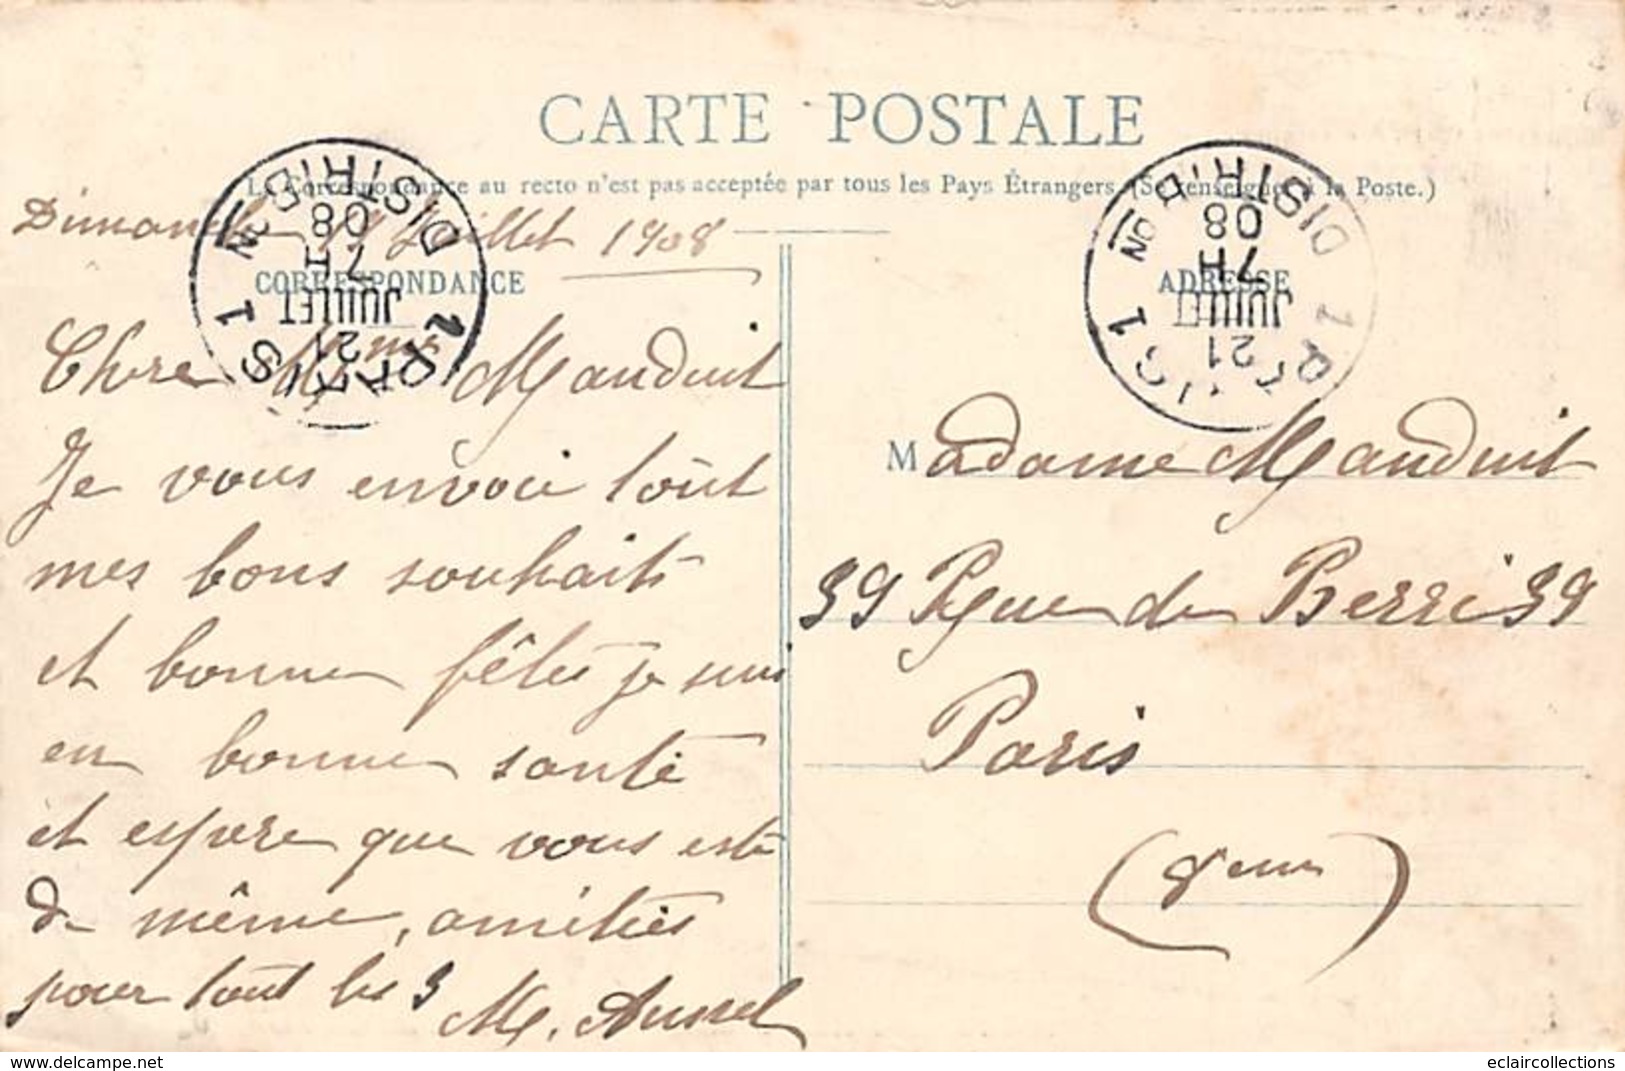 CARTE POSTALE
La Correspondance au recto n'est pas acceptée par tous les Pays Étrangers (Se renseigner à la Poste.)
Dimanche Juillet 1908
CORRESPONDANCE
Chere Mme Mauduit
Je vous envoie tout
mes bons souhaits
et bonne fêtes je suis
en bonne santé
et espere que vous est
de même, amitiés
pour tout les 3
M. Aussel
ADRESSE
Madame Mauduit
39 Rue de Berri 39
Paris
(8eme)
PARIS 1 DISTRIB ON
08
7H
JUILLET
21
PARIS 1 DISTRIB ON
08
7H
JUILLET
21
www.delcampe.net
eclaircollections